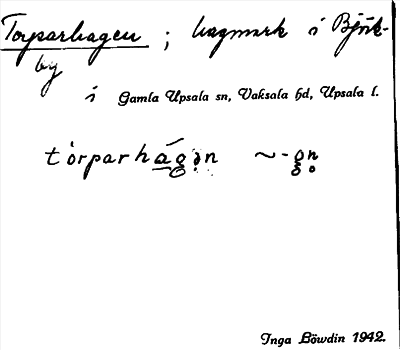 Torparhagen ; hagmark i Björk-
by
i Gamla Upsala sn, Vaksala hd, Upsala l.
tòrparhágən ~-gn̥
Inga Böwdin 1942.